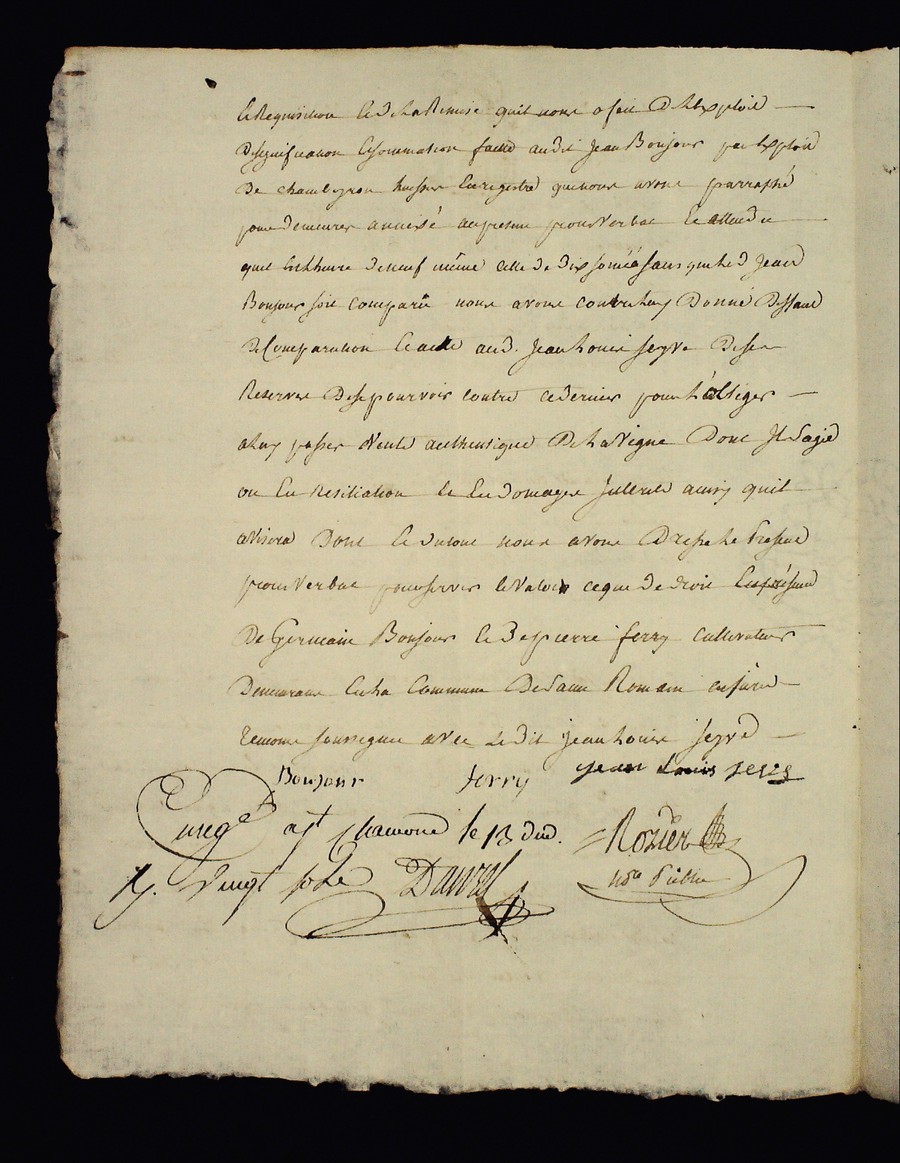 la Requisition et de la Remise quil nous a fait de lexploit
de signification et sommation faitte audit Jean Bonjour par exploit
de chambeyron huissier Enregistré que nous avons parraphé
pour demeurer annexé au presant procés Verbal et attandu
quil est lheure de neuf même celle de dix sonéé sans que led Jean
Bonjour soit comparû nous avons contre luy Donné Deffaut
de Comparution et acte aud. Jean Louis Seyve de ses
Reserves de se pourvoir contre ce dernier pour lobliger
a luy passer Vente authentique de la Vigne Dont Il Sagit
ou En Resiliation et En Domages Interets ainsy quil
avisera Dont et du tout nous avons Dressé le Present
procés Verbal pour servir et valoir ce que de droit En présence
De Germain Bonjour et de pierre ferry cultivateurs
Demeurant en la Commune de Saint Romain en jarêt
temoins soussignés avec Le dit Jean Louis Seyve
Bonjour ferry jean Louis seyve
Enregé a st Chamond le 13 dud.
R. Vingt sols Rozier
nore Public